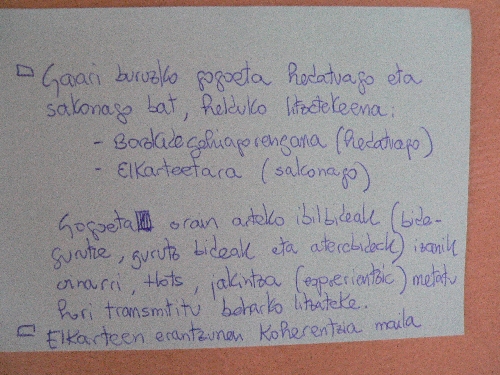 Gaiari buruzko gogoeta hedatuago eta
sakonago bat, helduko litzatekeena:
- Bazkide gehiagorengana (hedatuago)
- Elkarteetara (sakonago)
Gogoeta orain arteko ibilbideak (bide-
gurutze, gurutz bideak eta aterabideak) izanik
oinarri, hots, jakintza (esperientzia) metatu
hori transmititu beharko litzateke.
Elkarteen erantzunen koherentzia maila